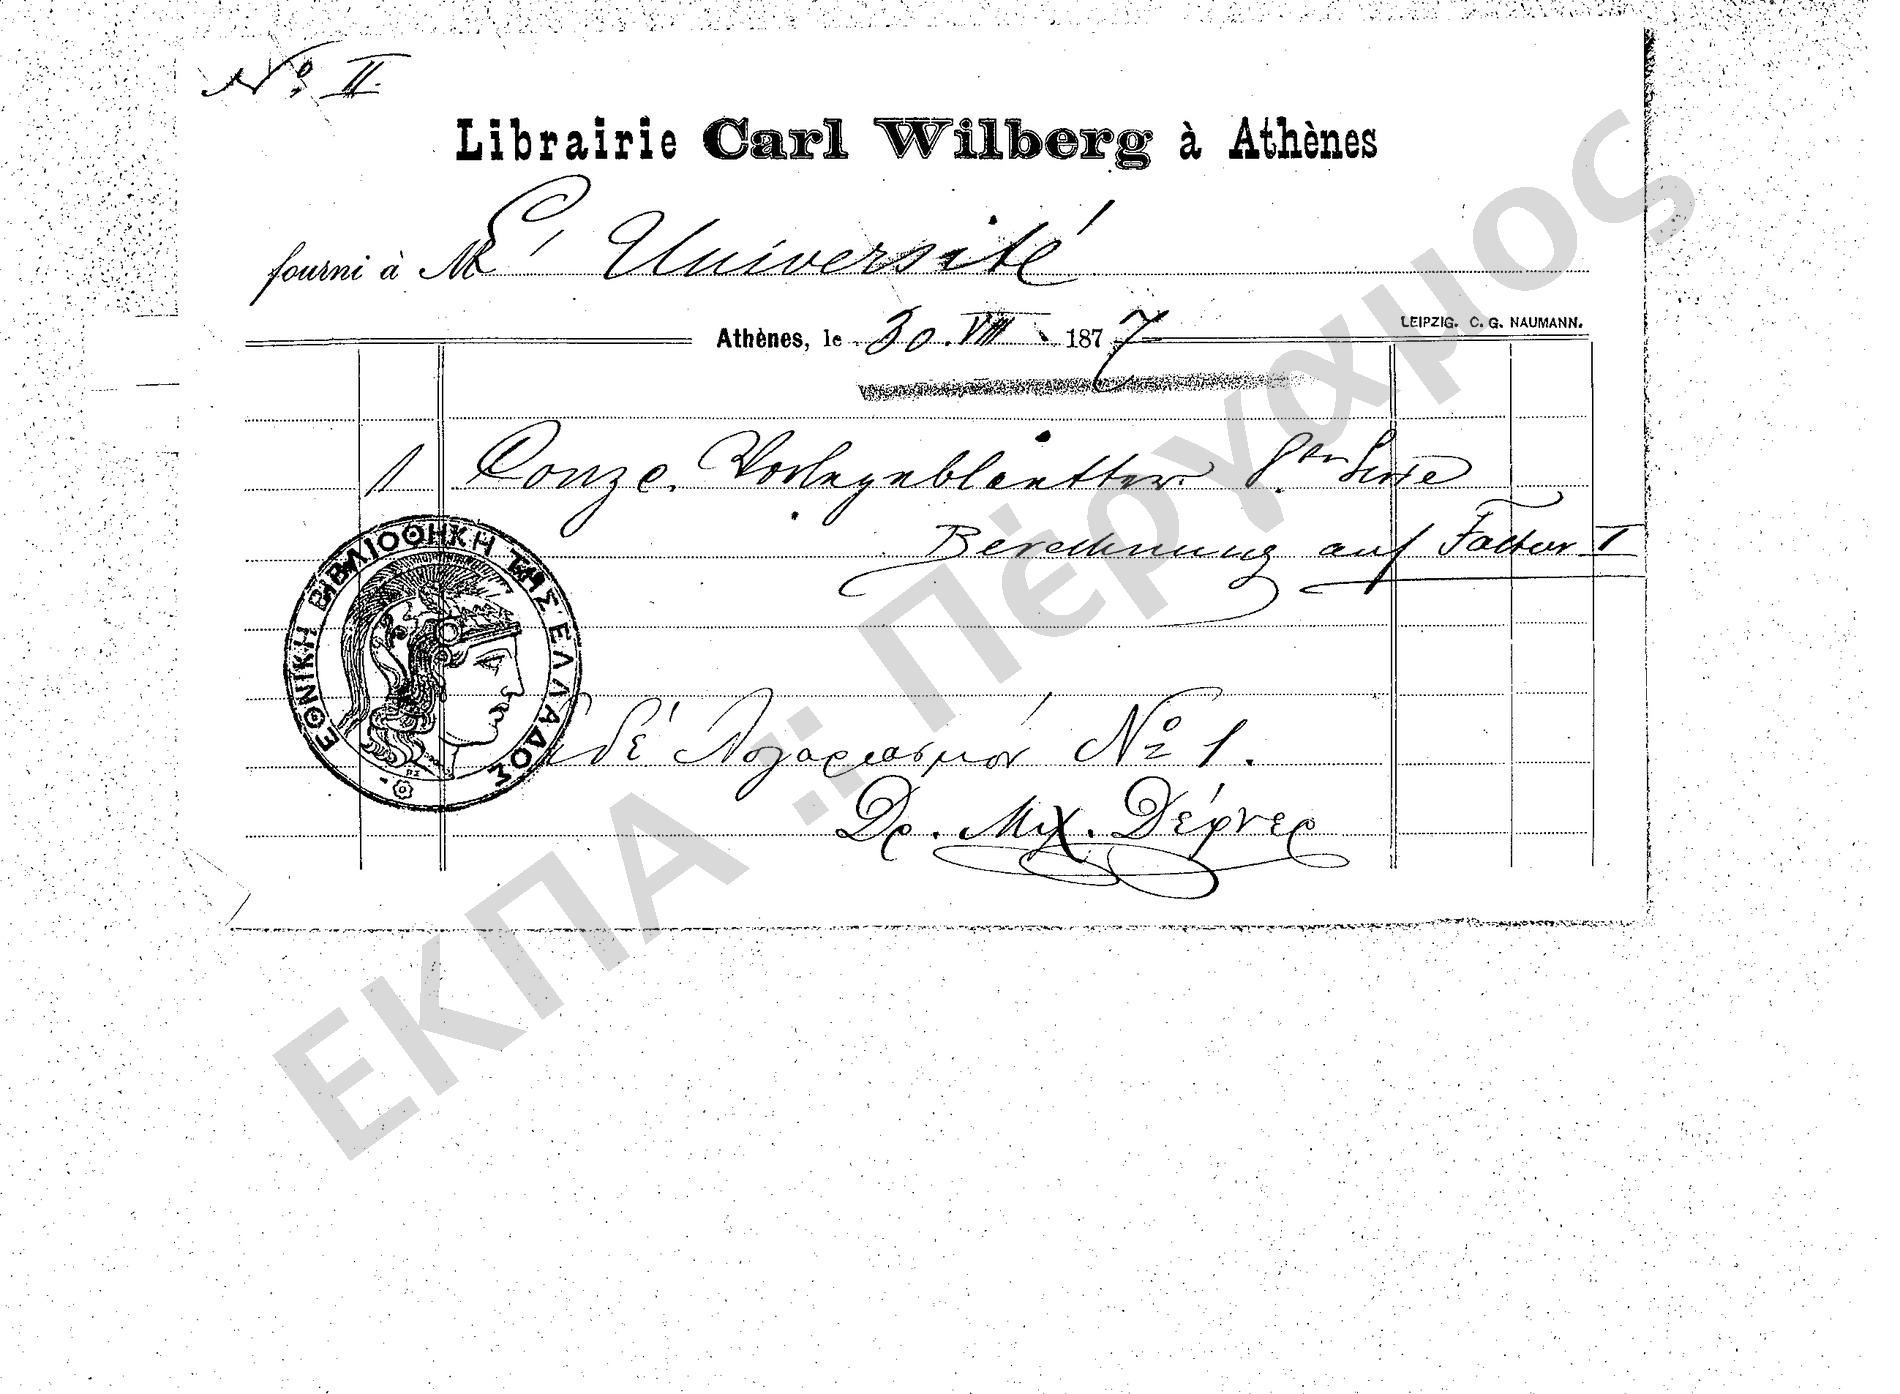 Nº II.
Librairie Carl Wilberg à Athènes
fourni à M L'Université
LEIPZIG. C. G. NAUMANN.
Athènes, le 30. VIII 1877
1 Conze. Vorlegeblaetter 8. Serie
Berechnung auf Factur I
ΕΘΝΙΚΗ ΒΙΒΛΙΟΘΗΚΗ ΤΗΣ ΕΛΛΑΔΟΣ
ἰδέ Λογαριασμόν Nº 1.
Δρ. Μιχ. Δέφνερ
ΕΚΠΑ :: Πέργαμος